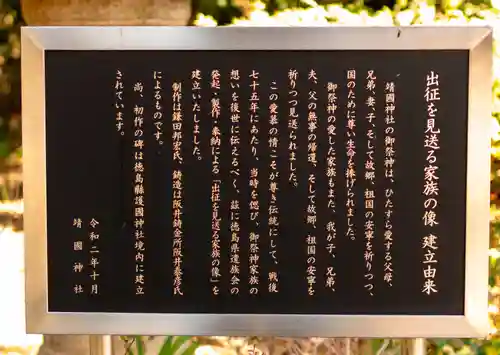 出征を見送る家族の像 建立由来
靖國神社の御祭神は、ひたすら愛する父母、
兄弟、妻、子、そして故郷、祖国の安寧を祈りつつ、
国のために尊い生命を捧げられました。
御祭神の愛した家族もまた、我が子、兄弟、
夫、父の無事の帰還、そして故郷、祖国の安寧を
祈りつつ見送られました。
この愛慕の情こそが尊き伝統にして、戦後
七十五年にあたり、当時を偲び、御祭神家族の
想いを後世に伝えるべく、茲に徳島県遺族会の
発起、製作、奉納による「出征を見送る家族の像」を
建立いたしました。
制作は鎌田邦宏氏、鋳造は阪井鋳金所阪井泰彦氏
によるものです。
尚、初作の碑は徳島縣護國神社境内に建立
されています。
令和二年十月
靖國神社